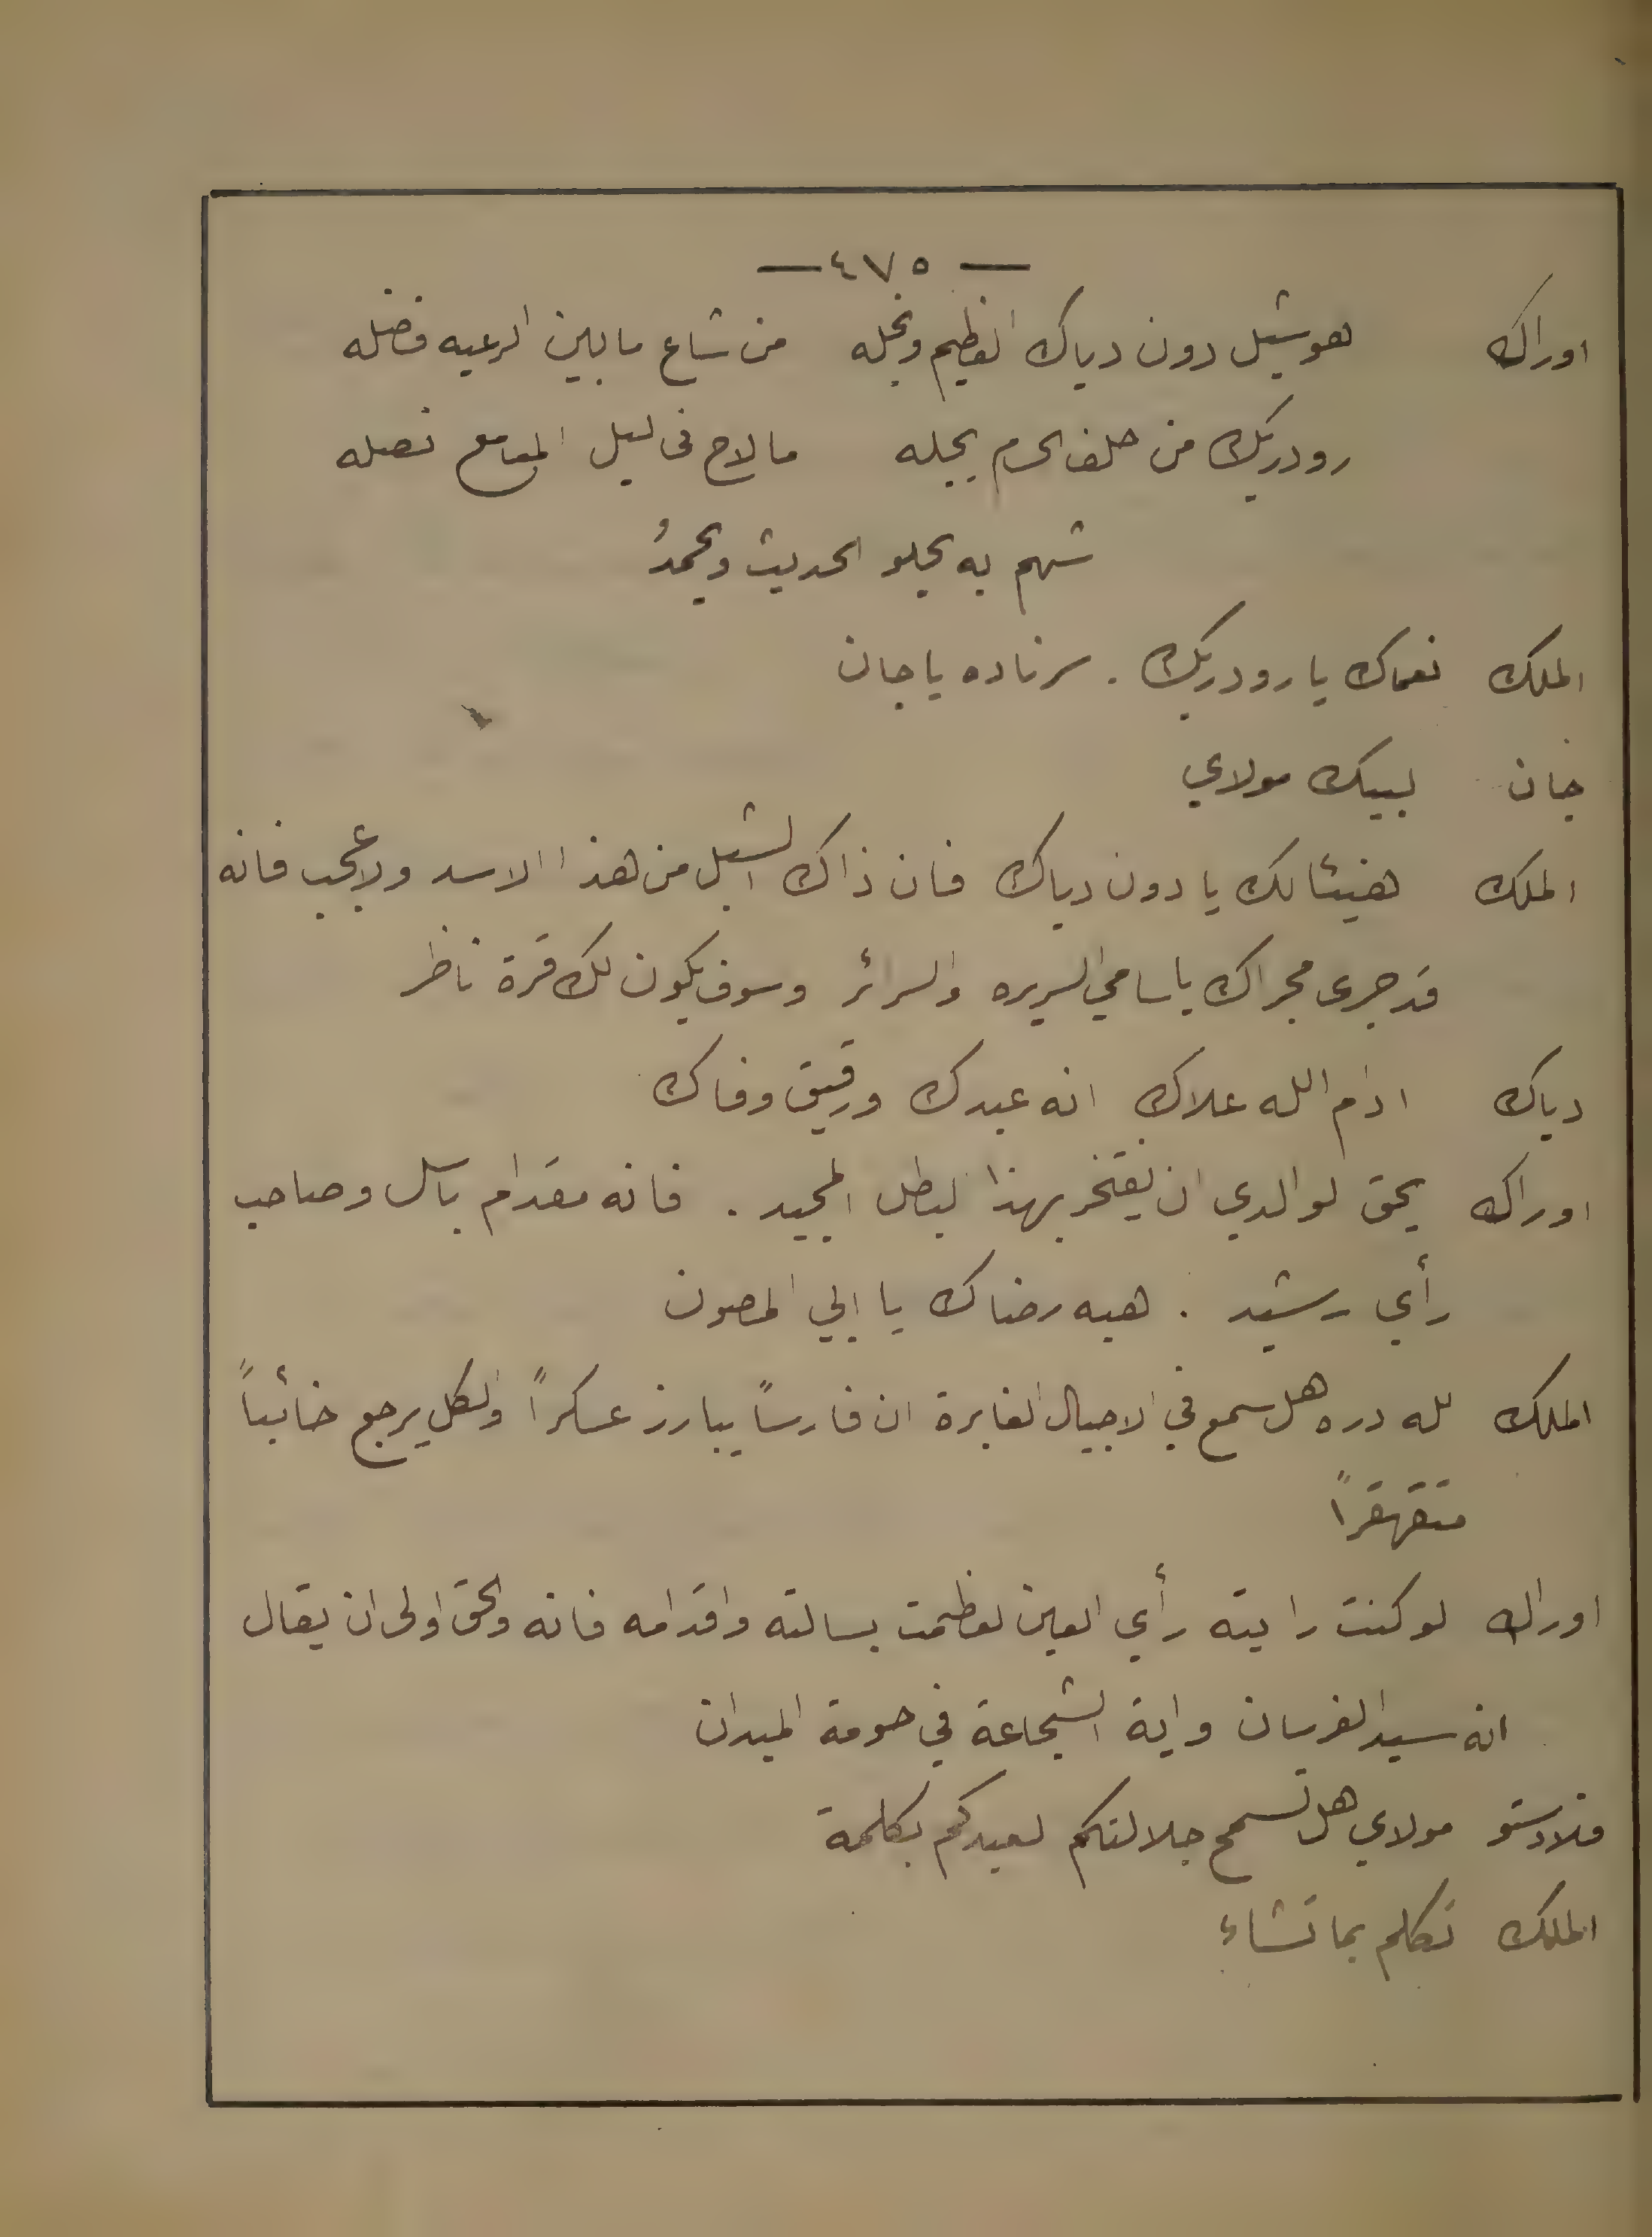 — ٤٧٥ —
اوراك هو شبل دون دياك العظيم ونجله من شاع ما بين الرعيه فضله
رودريك من خلف الحرم يجله ما لاح فى ليل المعامع نصله
شهم به يحلو الحديث ويحمدُ
الملك نعماك يا رودريك . سر ناده يا جان
جان لبيك مولاي
الملك هنيئا لك يا دون دياك فان ذاك الشبل من هذا الاسد ولا عجب فانه
قد جرى مجراك يا سامي السريره والسرائر وسوف يكون لك قرة ناظر
دياك ادام الله علاك انه عبدك ورقيق وفاك
اوراك يحق لوالدي ان يفتخر بهذا البطل المجيد . فانه مقدام باسل وصاحب
رأي رشيد . هبه رضاك يا ابي المصون
الملك لله دره هل سمع في الاجيال الغابرة ان فارساً يبارز عسكراً والكل يرجع خائباً
متقهقراً
اوراك لو كنت رايته رأي العين لعظمت بسالته واقدامه فانه والحق اولى ان يقال
انه سيد الفرسان واية الشجاعة في حومة الميدان
فلادستو مولاي هل تسمح جلالتكم لعبدكم بكلمة
الملك تكلم بما تشاء